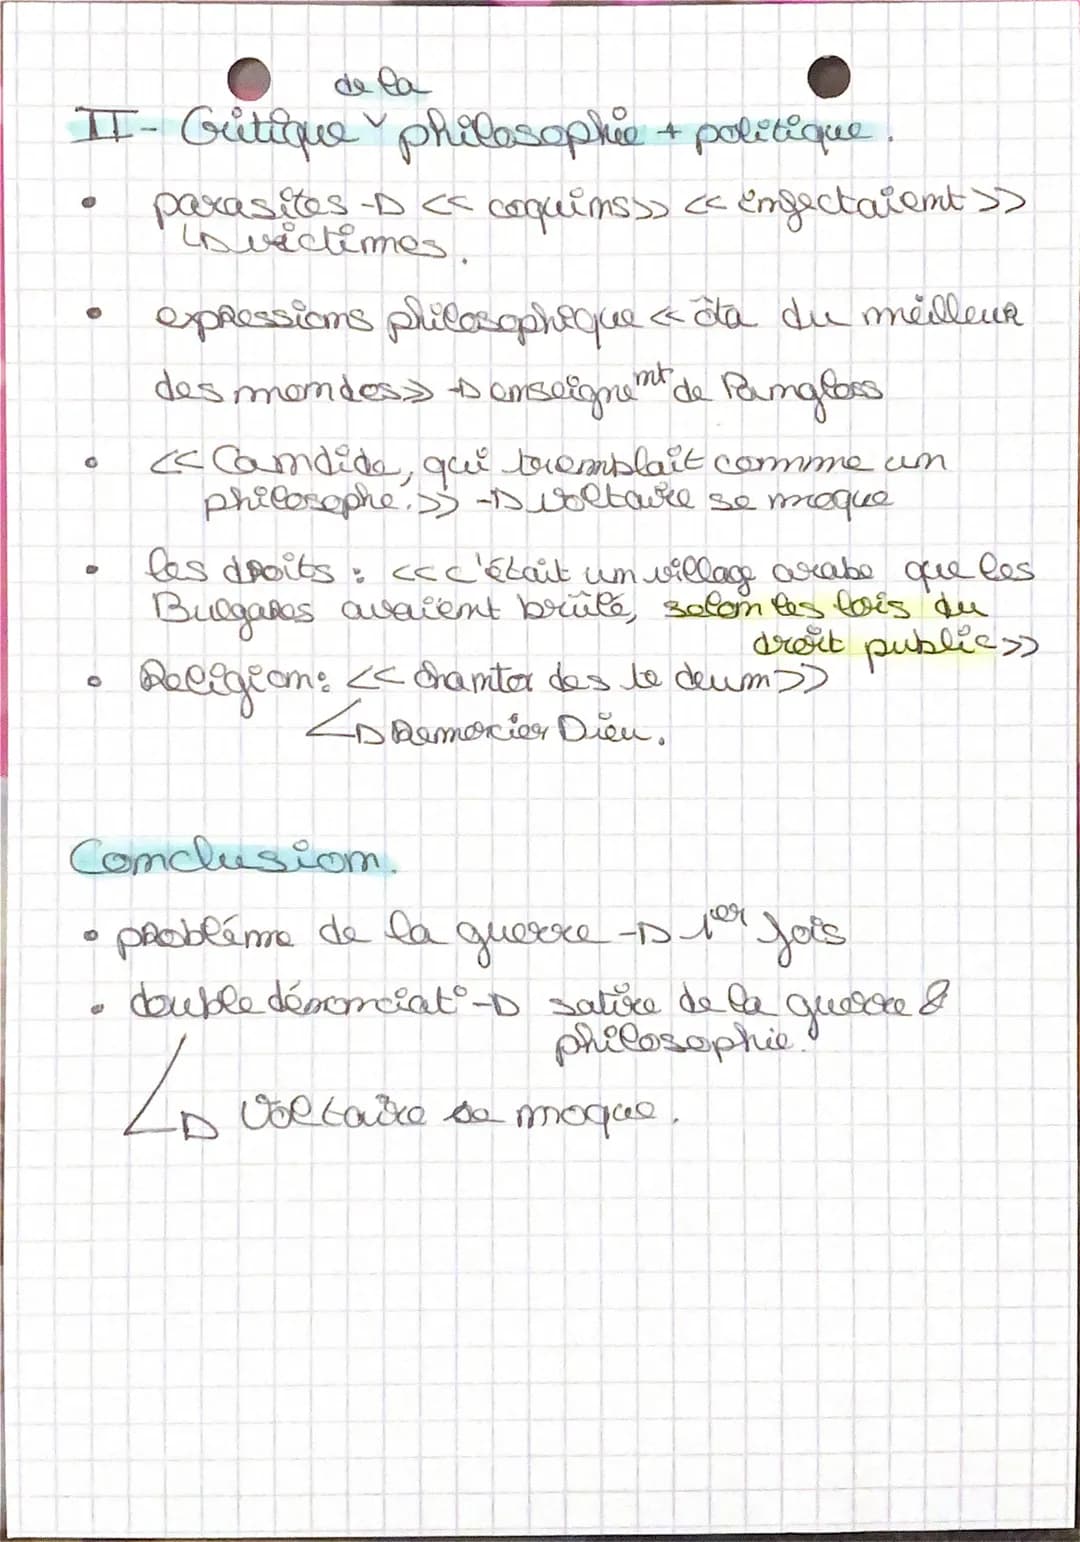 de la
II- Critique ˅ philosophie + politique.
• parasites -> << coquins>> << infectaient >>
↳ victimes.
• expressions philosophique << ôta du meilleur
des mondes>> -> enseignemt de Pangloss
• << Candide, qui tremblait comme un
philosophe.>> -> Voltaire se moque
• les droits : <<c'était un village arabe que les
Bulgares avaient brûlé, selon les lois du
droit public>>
• Religion: << chanter des te deum>>
↳ Remercier Dieu.
Conclusion.
• probléme de la guerre -> 1er fois
• double dénonciat° -> satire de la guerre &
philosophie.
↳ Voltaire se moque.